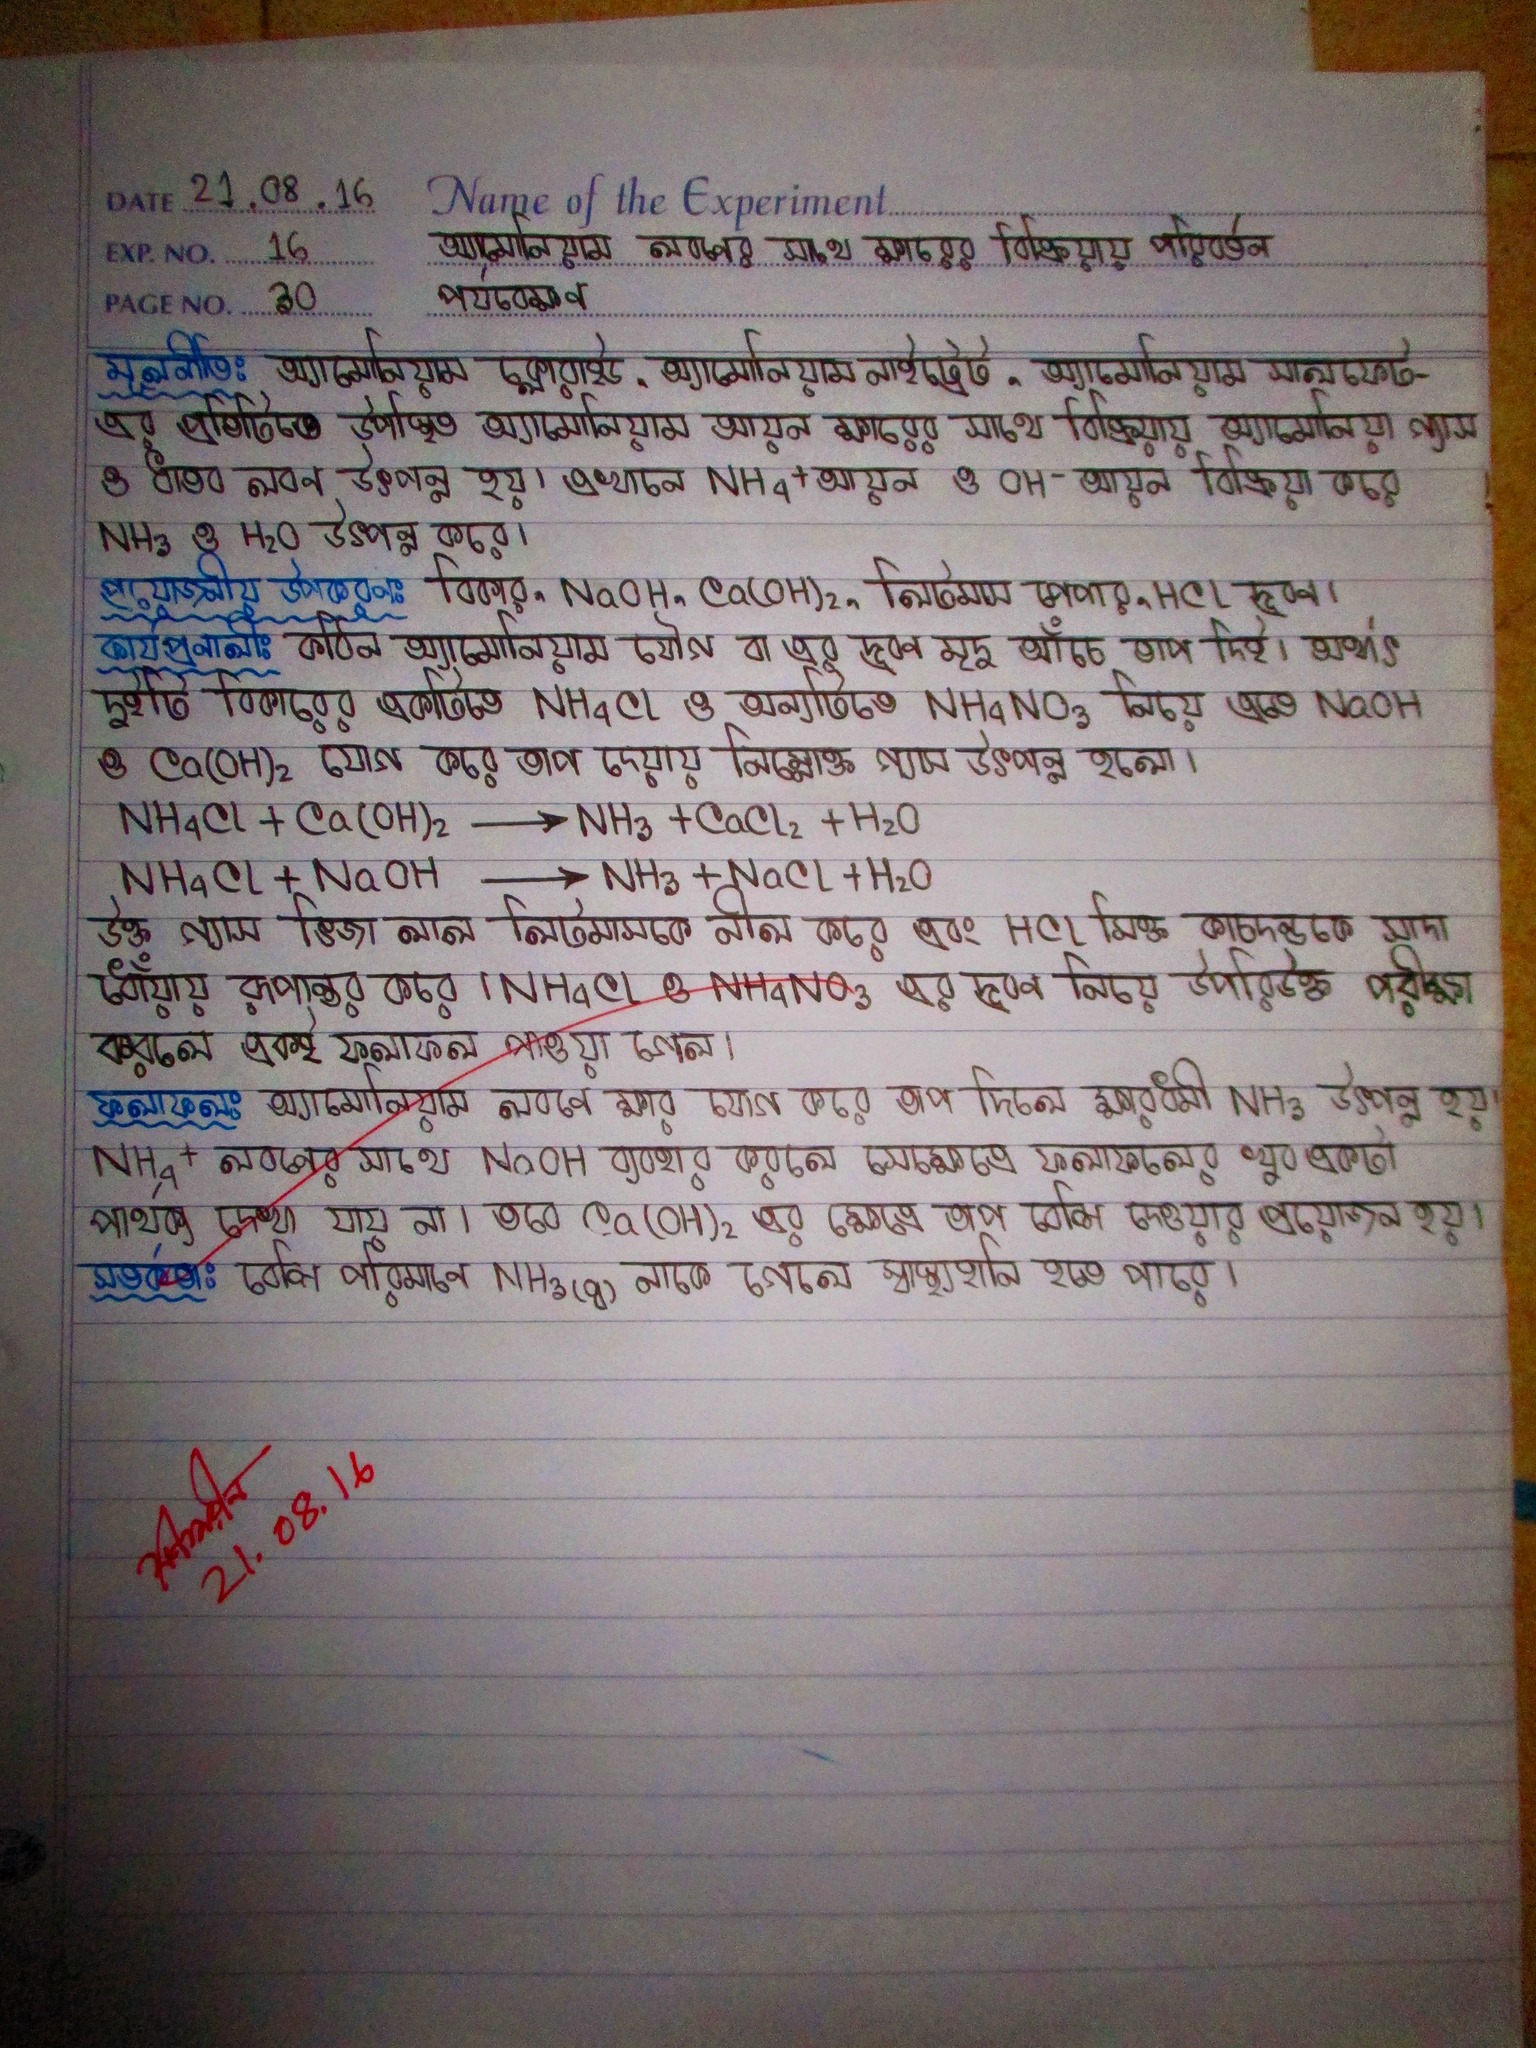 DATE 21.08.16 Name of the Experiment
EXP. NO. 16 অ্যামোনিয়াম লবণের সাথে ক্ষারের বিক্রিয়ায় পরিবর্তন
PAGE NO. 30 পর্যবেক্ষণ
মূলনীতিঃ অ্যামোনিয়াম ক্লোরাইড, অ্যামোনিয়াম নাইট্রেট, অ্যামোনিয়াম সালফেট-
এর প্রতিটিতে উপস্থিত অ্যামোনিয়াম আয়ন ক্ষারের সাথে বিক্রিয়ায় অ্যামোনিয়া গ্যাস
ও ধাতব লবণ উৎপন্ন হয়। এখানে NH₄⁺ আয়ন ও OH⁻ আয়ন বিক্রিয়া করে
NH₃ ও H₂O উৎপন্ন করে।
প্রয়োজনীয় উপকরণঃ বিকার, NaOH, Ca(OH)₂, লিটমাস পেপার, HCl দ্রবণ।
কার্যপ্রনালীঃ কঠিন অ্যামোনিয়াম যৌগ বা এর দ্রবণ মৃদু আঁচে তাপ দিই। অর্থাৎ
দুইটি বিকারের একটিতে NH₄Cl ও অন্যটিতে NH₄NO₃ নিয়ে এতে NaOH
ও Ca(OH)₂ যোগ করে তাপ দেয়ায় নিম্নোক্ত গ্যাস উৎপন্ন হলো।
NH₄Cl + Ca(OH)₂ ⟶ NH₃ + CaCl₂ + H₂O
NH₄Cl + NaOH ⟶ NH₃ + NaCl + H₂O
উক্ত গ্যাস ভিজা লাল লিটমাসকে নীল করে এবং HCl সিক্ত কাচদন্ডকে সাদা
ধোঁয়ায় রূপান্তর করে। NH₄Cl ও NH₄NO₃ এর দ্রবণ নিয়ে উপরিউক্ত পরীক্ষা
করলে একই ফলাফল পাওয়া গেল।
ফলাফলঃ অ্যামোনিয়াম লবণে ক্ষার যোগ করে তাপ দিলে ক্ষারধর্মী NH₃ উৎপন্ন হয়।
NH₄⁺ লবণের সাথে NaOH ব্যবহার করলে সেক্ষেত্রে ফলাফলের খুব একটা
পার্থক্য দেখা যায় না। তবে Ca(OH)₂ এর ক্ষেত্রে তাপ বেশি দেওয়ার প্রয়োজন হয়।
সতর্কতাঃ বেশি পরিমানে NH₃(g) নাকে গেলে স্বাস্থ্যহানি হতে পারে।
21.08.16